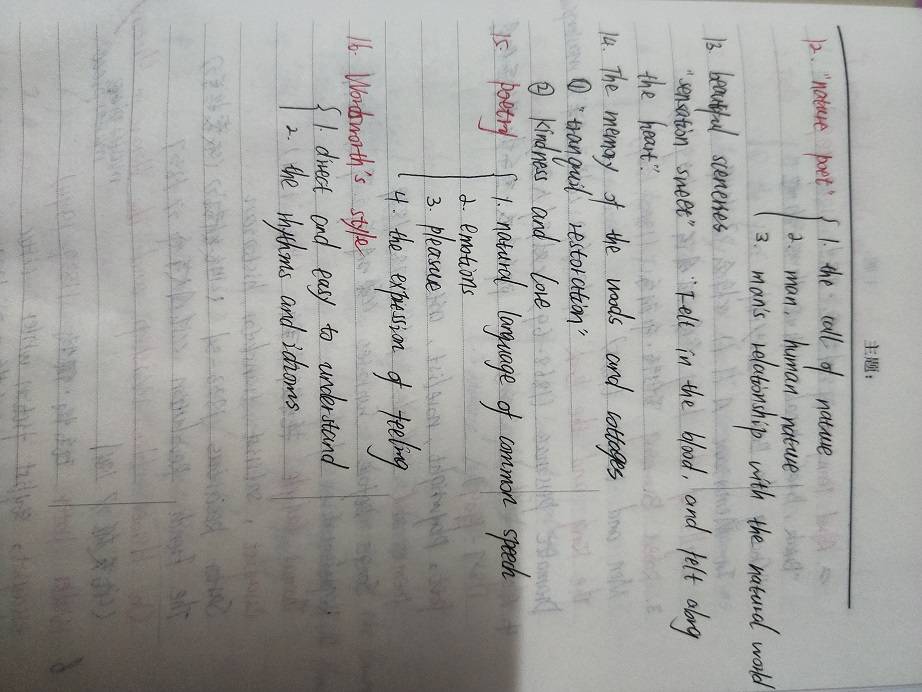 主题:
12. "nature poet" { 1. the call of nature
2. man, human nature
3. man's relationship with the natural world
13. beautiful sceneries
"sensation sweet" "Felt in the blood, and felt along
the heart."
14. The memory of the woods and cottages
① "tranquil restoration"
② kindness and love
15. poetry { 1. natural language of common speech
2. emotions
3. pleasure
4. the expression of feeling
16. Wordsworth's style
{ 1. direct and easy to understand
2. the rhythms and idioms